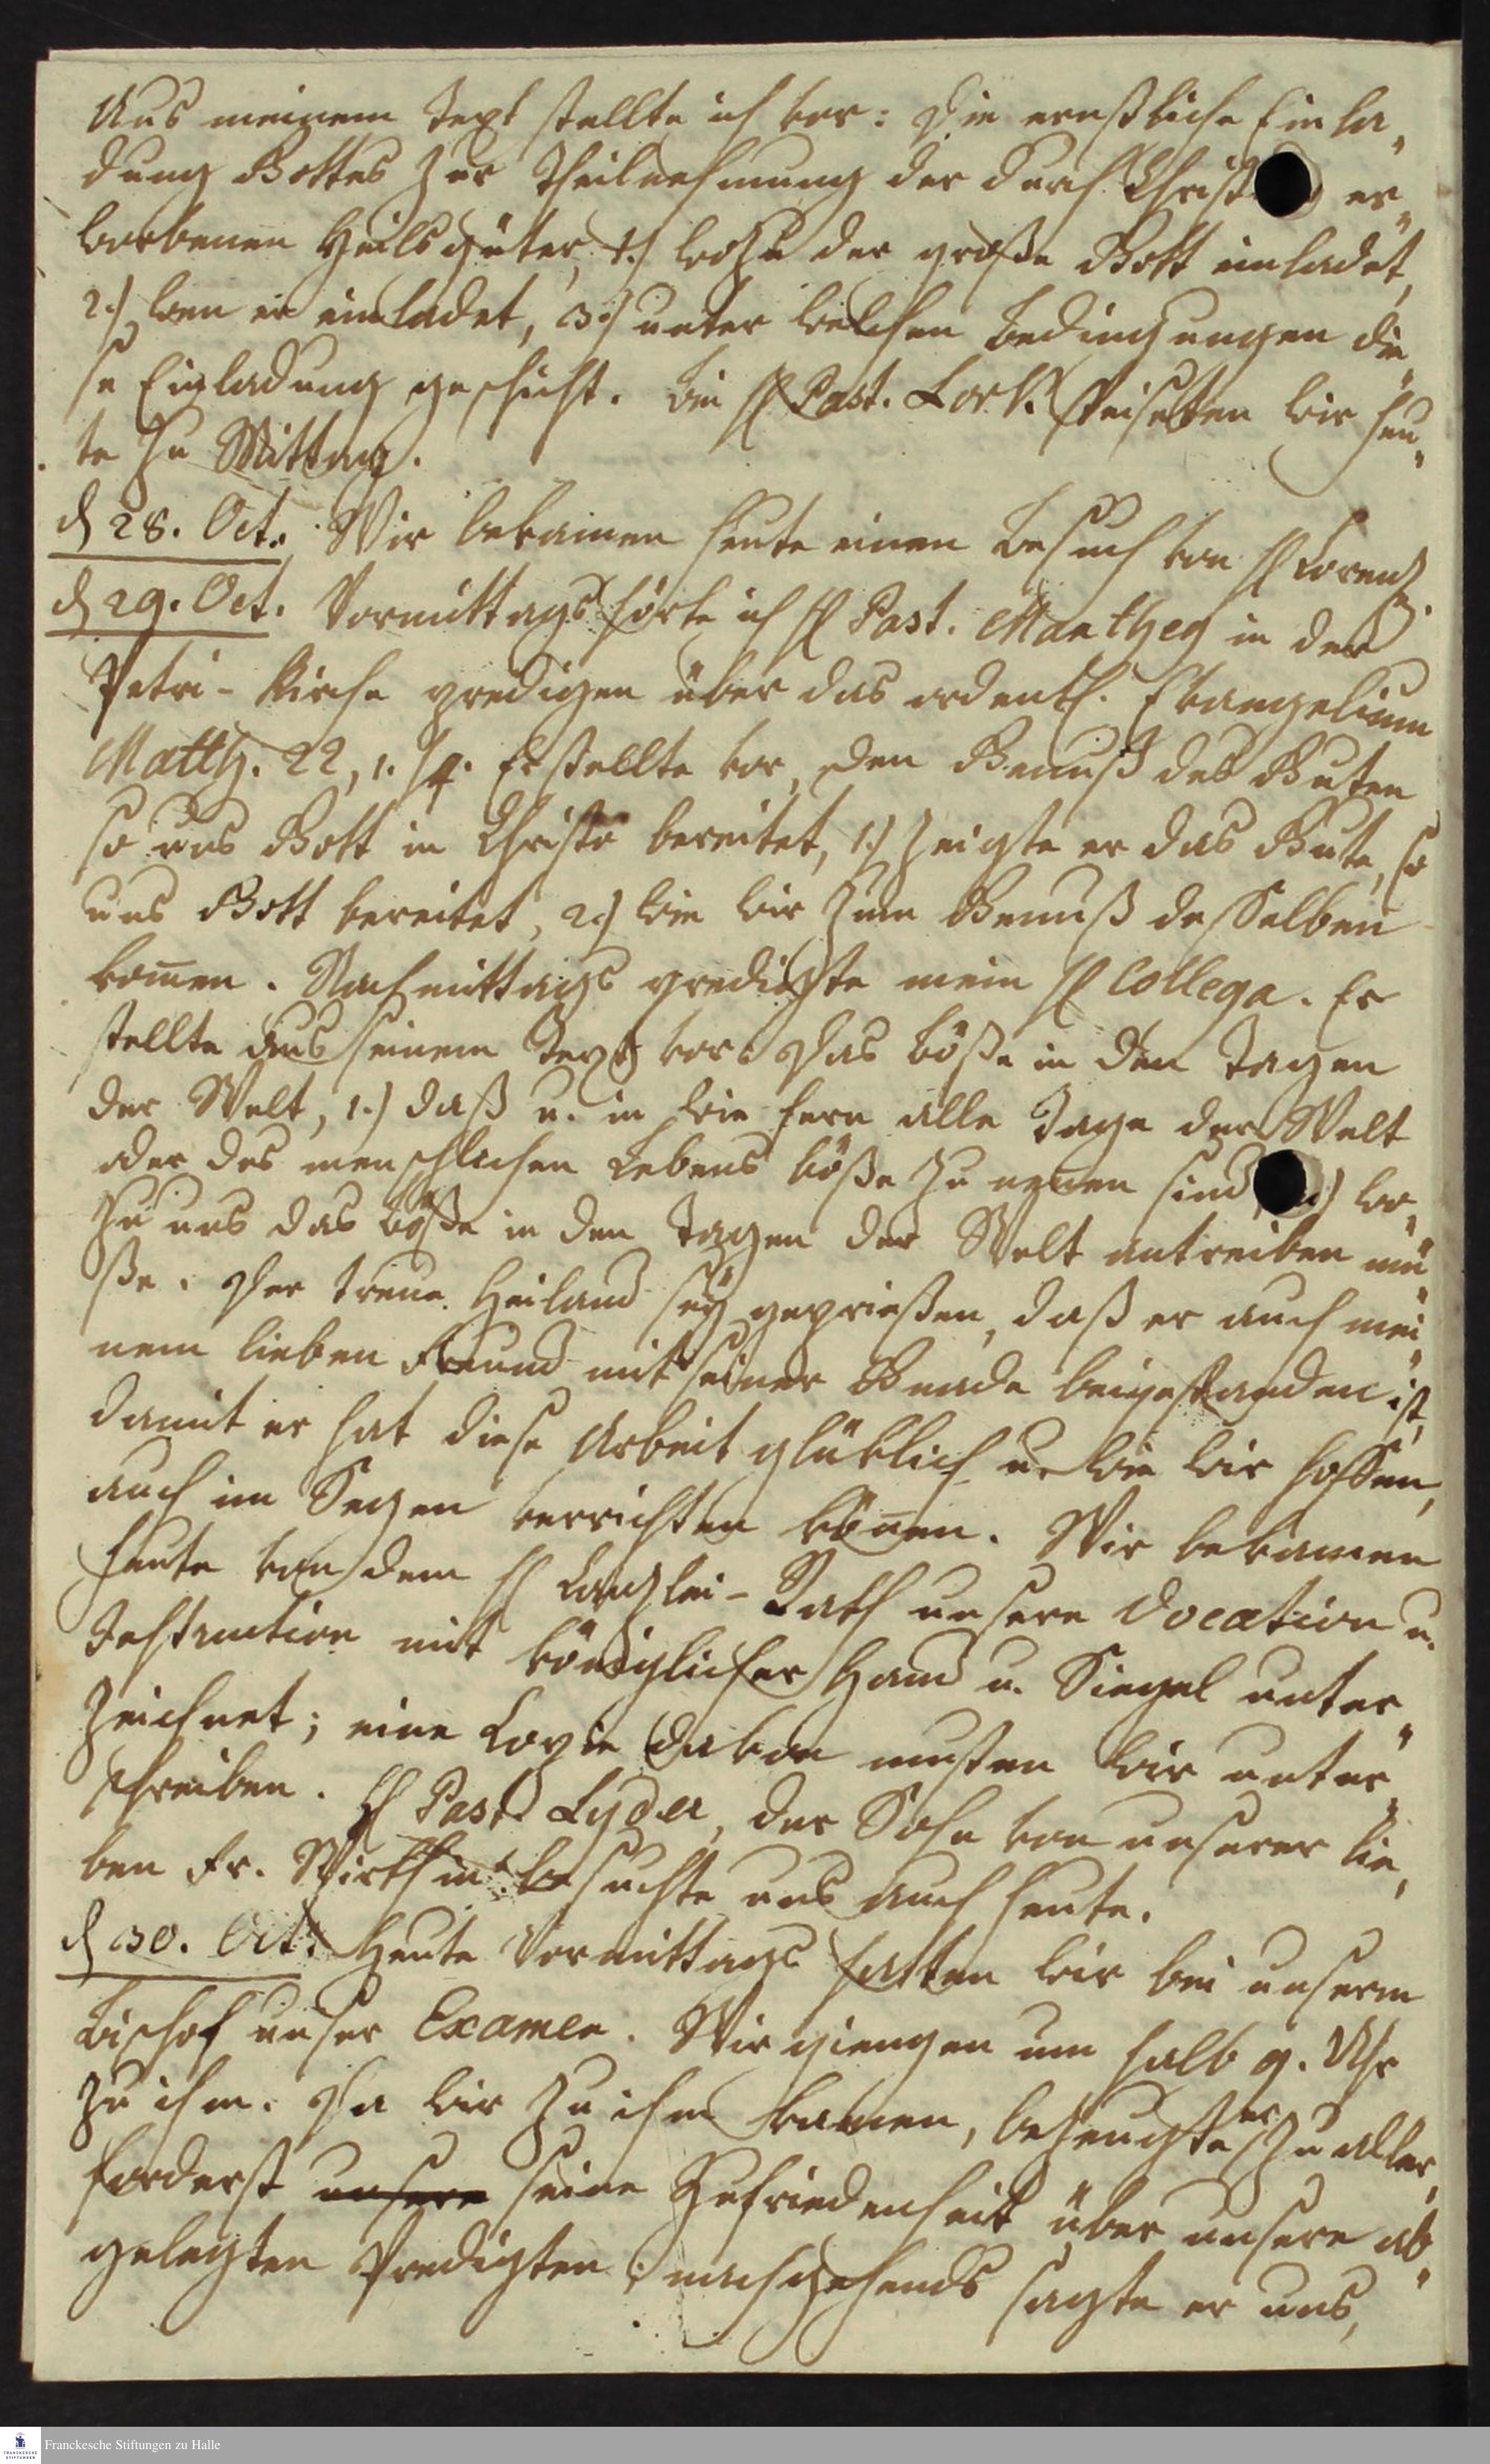 Aus meinem Text stellte ich vor: Die ernstliche Einla„
dung Gottes zur Theilnehmung der durch Christ er„
worbenen Heilsgüter, 1.) wozu der große Gott einladet,
2.) wen er einladet, 3.) unter welchen Bedingungen die„
se Einladung geschieht. Bei H Past. Lork speiseten wir heu„
te zu Mittag.
d 28. Oct. Wir bekamen heute einen Besuch von H Lorenz.
d 29. Oct. Vormittags hörte ich H Past. Manthey in der
Petri-Kirche predigen über das ordentl. Evangelium
Matth. 22, 1. sq. Er stellte vor, den Genuß des Guten
so uns Gott in Christo bereitet, 1.) zeigte er das Gute, so
uns Gott bereitet, 2.) wie wir zum Genuß desselben
kom̄en. Nachmittags predigte mein H Collega. Er
stellte aus seinem Text vor: Das böße in den Tagen
der Welt, 1.) daß u. in wie fern alle Tage der Welt
oder des menschlichen Lebens böße zu nen̄en sind, wo„
zu uns das böße in den Tagen der Welt antreiben mü„
ße. Der treue Heiland seÿ geprießen, daß er auch mei„
nem lieben Freund mit seiner Gnade beigestanden ist,
damit er hat diese Arbeit glüklich u. wie wir hoffen,
auch im Segen verrichten kön̄en. Wir bekamen
heute von dem H Canzlei-Rath unsere Vocation u.
Instruction mit königlicher Hand u. Siegel unter„
zeichnet; eine Copie davon musten wir unter„
schreiben. H Past. Lyder, der Sohn von unserer lie„
ben Fr. Wirthin besuchte uns auch heute.
d 30. Oct. Heute Vormittags hatten wir bei unserm
Bischof unser Examen. Wir giengen um halb 9. Uhr
zu ihm. Da wir zu ihm kamen, bezeugte er zu aller„
forderst unsere seine Zufriedenheit über unsere ab„
gelegten Predigten; nachgehends sagte er uns,
Franckesche Stiftungen zu Halle